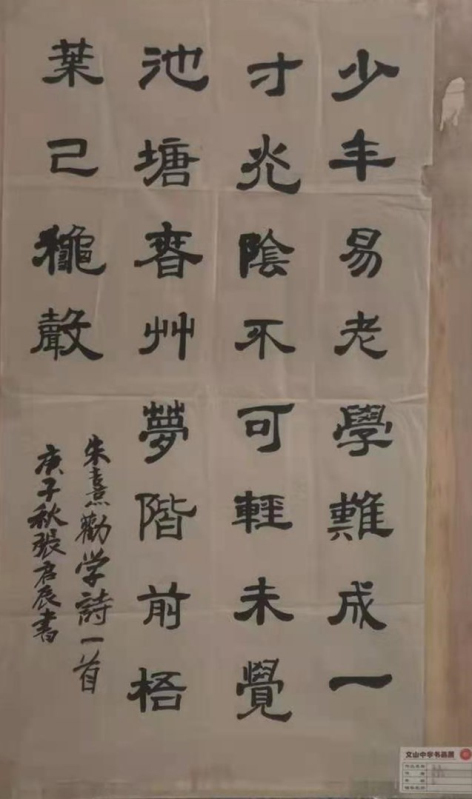 少年易老學難成一
寸光陰不可輕未覺
池塘春艸夢階前梧
葉已穐聲
朱熹勸学詩一首
庚子秋張君辰書
文山中华书画展